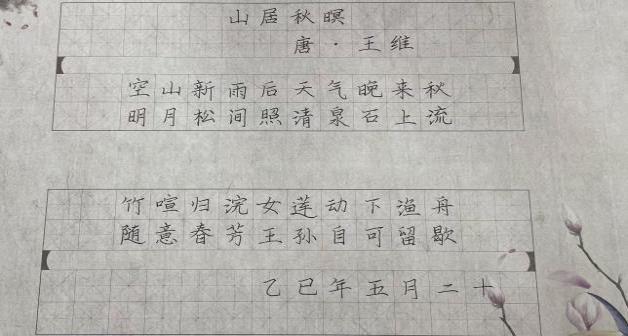 山居秋暝
唐·王维
空山新雨后天气晚来秋
明月松间照清泉石上流
竹喧归浣女莲动下渔舟
随意春芳王孙自可留歇
乙巳年五月二十